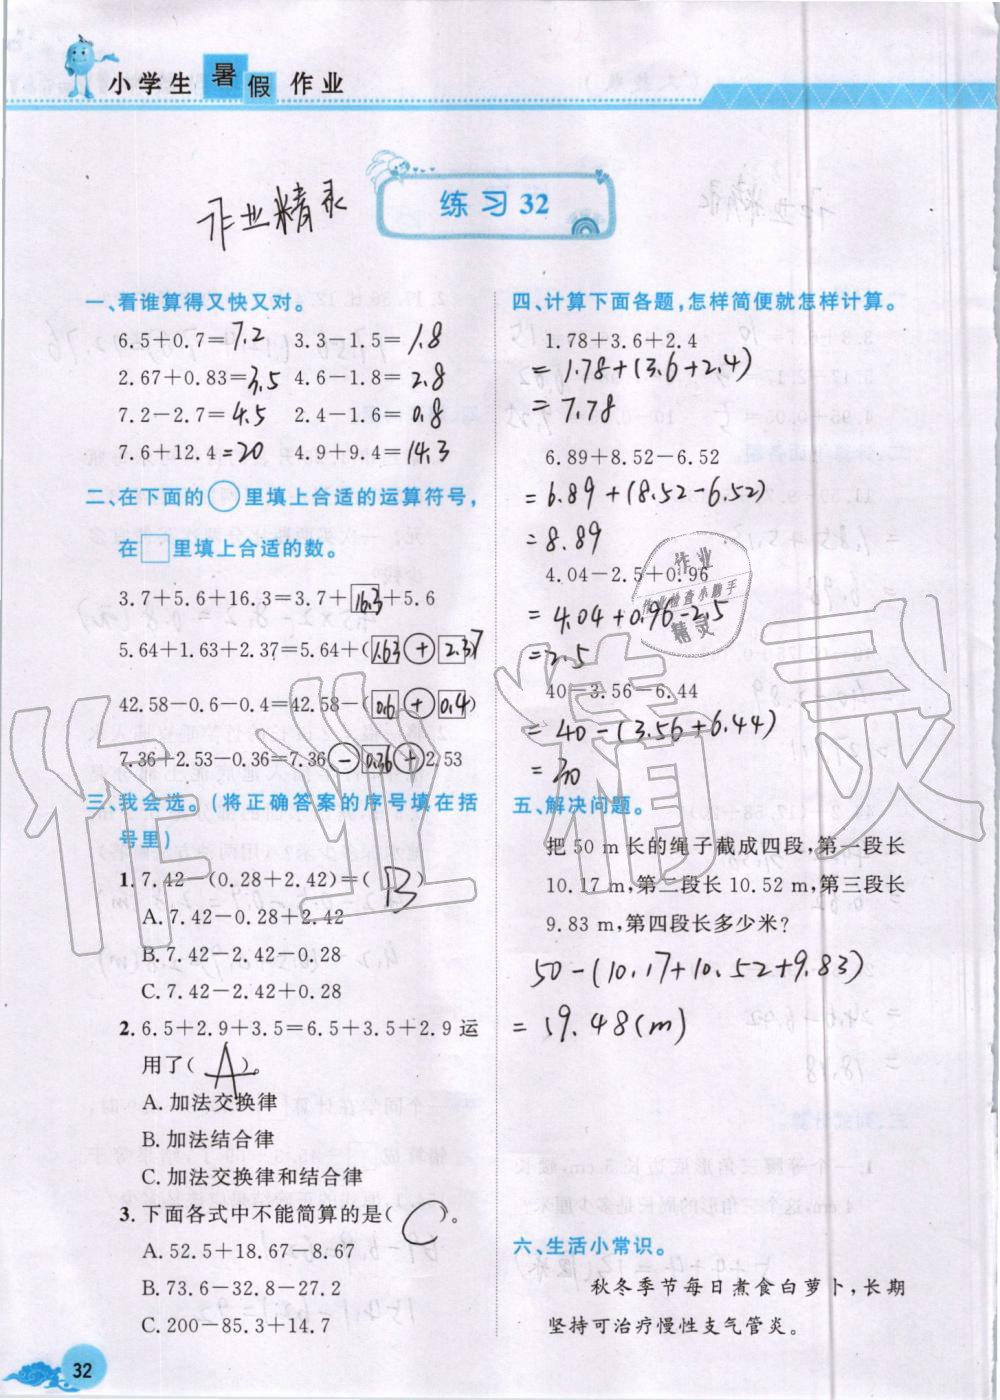 小学生暑假作业
作业精灵
练习32
一、看谁算得又快又对。
6.5+0.7=7.2 3.3-1.5=1.8
2.67+0.83=3.5 4.6-1.8=2.8
7.2-2.7=4.5 2.4-1.6=0.8
7.6+12.4=20 4.9+9.4=14.3
二、在下面的○里填上合适的运算符号,
在□里填上合适的数。
3.7+5.6+16.3=3.7+16.3+5.6
5.64+1.63+2.37=5.64+(1.63+2.37)
42.58-0.6-0.4=42.58-(0.6+0.4)
7.36+2.53-0.36=7.36-0.36+2.53
三、我会选。(将正确答案的序号填在括
号里)
1. 7.42-(0.28+2.42)=(B)
A. 7.42-0.28+2.42
B. 7.42-2.42-0.28
C. 7.42-2.42+0.28
2. 6.5+2.9+3.5=6.5+3.5+2.9运
用了(A)。
A. 加法交换律
B. 加法结合律
C. 加法交换律和结合律
3. 下面各式中不能简算的是(C)。
A. 52.5+18.67-8.67
B. 73.6-32.8-27.2
C. 200-85.3+14.7
四、计算下面各题,怎样简便就怎样计算。
1.78+3.6+2.4
=1.78+(3.6+2.4)
=7.78
6.89+8.52-6.52
=6.89+(8.52-6.52)
=8.89
4.04-2.5+0.96
=4.04+0.96-2.5
=2.5
40-3.56-6.44
=40-(3.56+6.44)
=30
五、解决问题。
把50 m长的绳子截成四段,第一段长
10.17 m,第二段长10.52 m,第三段长
9.83 m,第四段长多少米?
50-(10.17+10.52+9.83)
=19.48(m)
六、生活小常识。
秋冬季节每日煮食白萝卜,长期
坚持可治疗慢性支气管炎。
32
作业
作业检查小助手
精灵
作业精灵